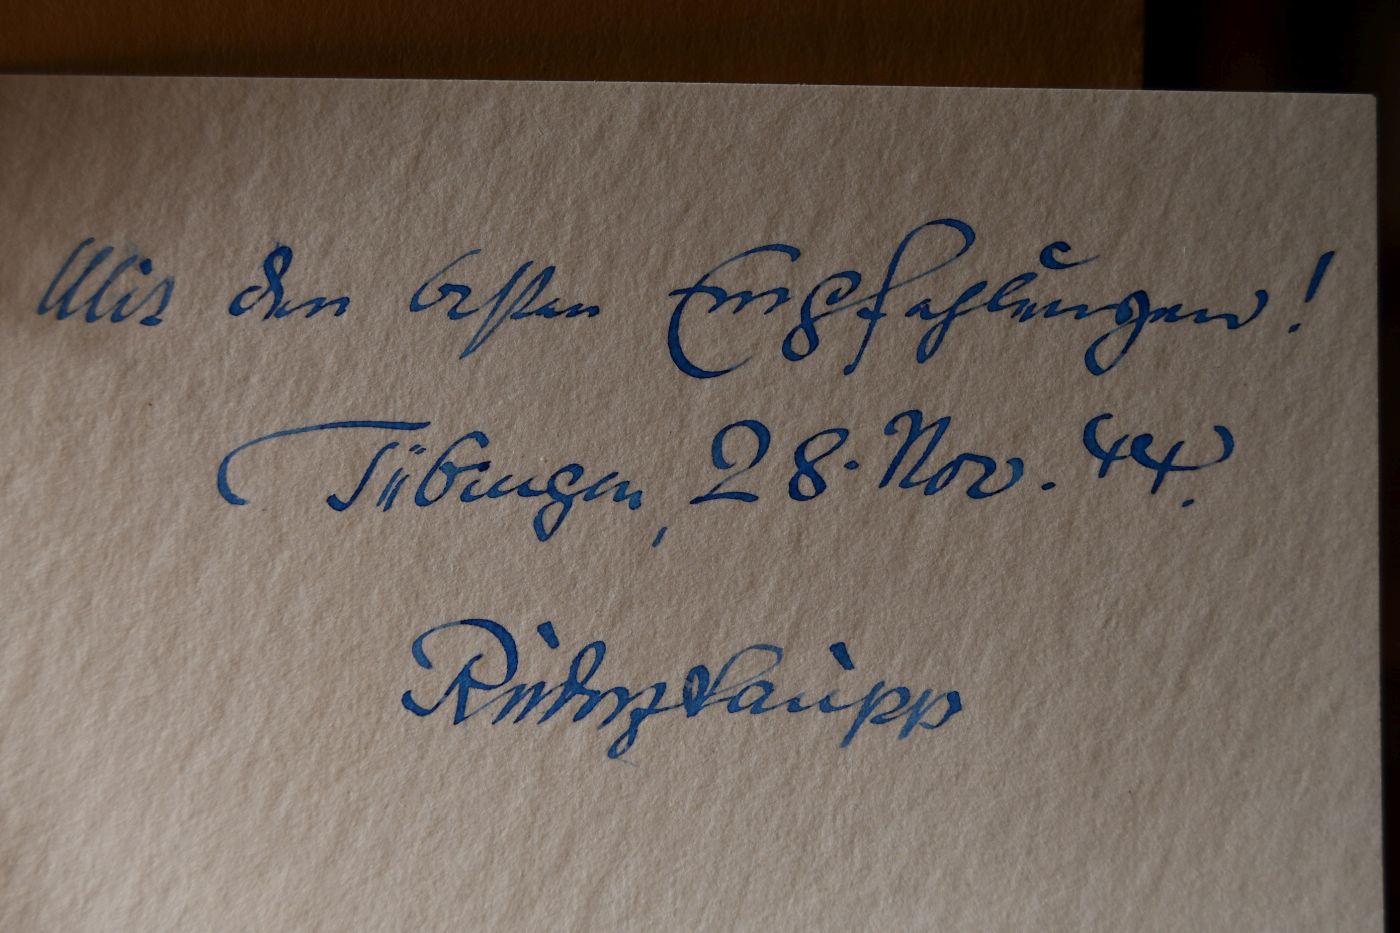 Mit den besten Empfehlungen!
Tübingen, 28. Nov. 44.
Laupp